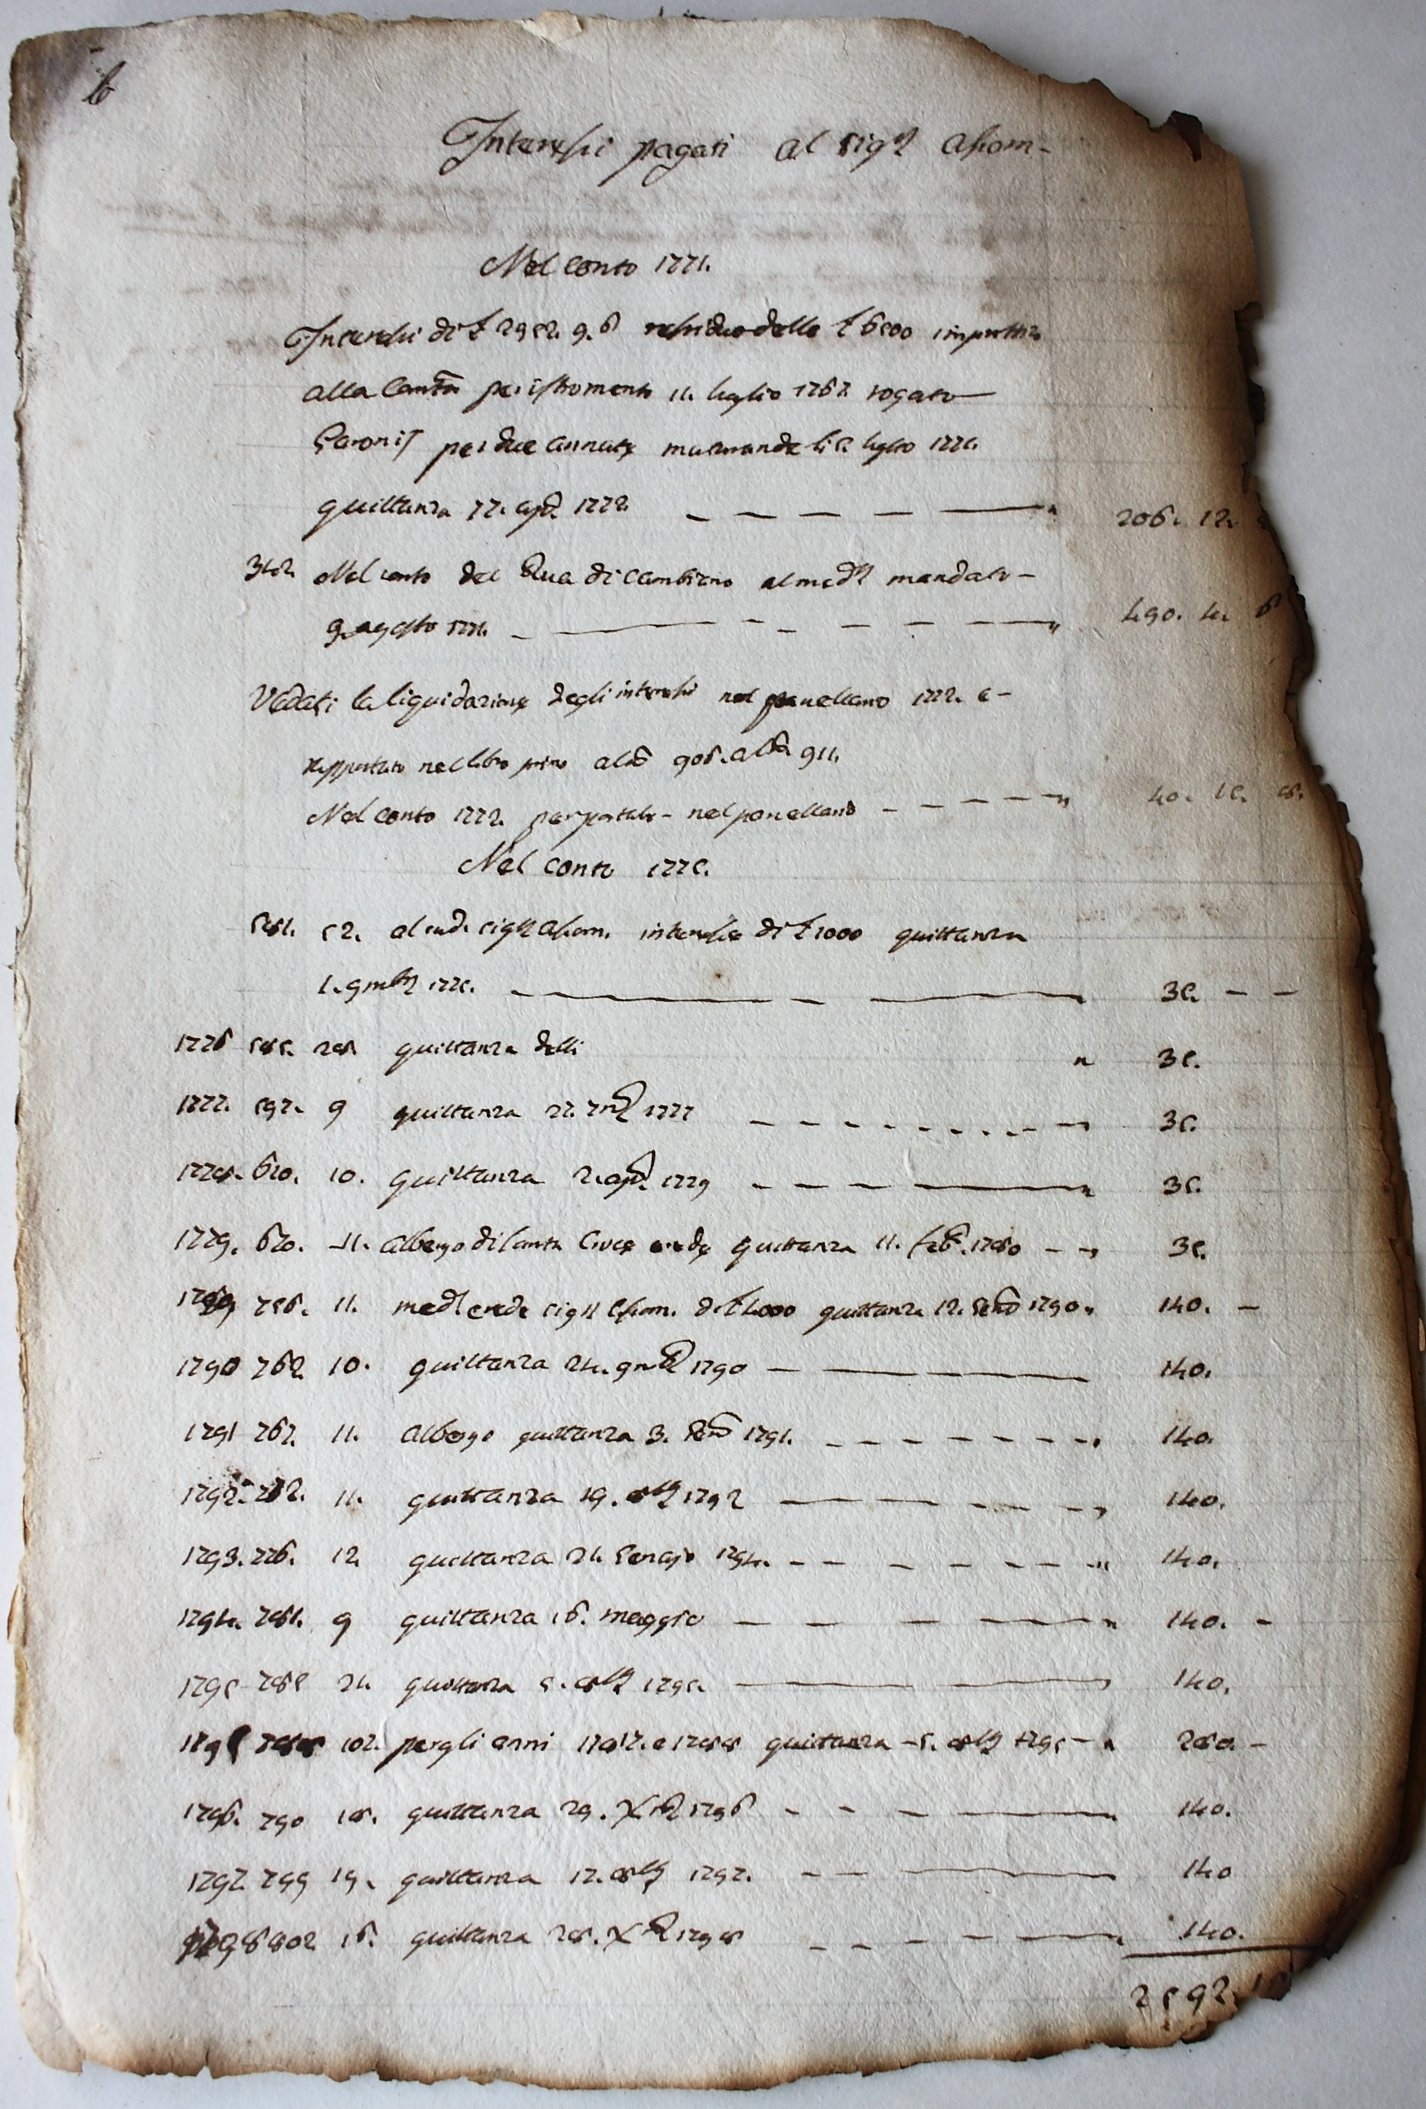 6
Interessi pagati al Sigr
Nel conto 1771.
Interessi di £ 2952. 9. 6 residuo delle £ 6500
alla per istromento 11. luglio 1767 rogato
per due annate luglio 1771.
quittanza 1772. 206. 12.
Nel conto del di Cambiano al med. mandato
9. agosto 1771. 490. 4. 6
Vedasi la liquidazione degli interessi nel panellano 1772. e
rapportato nel libro primo 906. 911.
Nel conto 1772. per portate nel panellano 40. 15. 8.
Nel conto 1775.
581. 52. al sud. Sigr interesse di £ 1000 quittanza
1. 9mbre 1775. 35. - -
1776 585. 28. quittanza delli 35.
1777. 597. 9 quittanza 27. 7mbre 1777 35.
1778. 610. 10. quittanza 2. 1779 35.
1779. 620. 11. albergo di Santa Croce erede quittanza 11. feb. 1780 35.
756. 11. med. erede Sigr di £ 4000 quittanza 12. 1790 140. -
1790 762 10. quittanza 24. 9mbre 1790 140.
1791 767. 11. albergo quittanza 3. 1791. 140.
1792. 772. 11. quittanza 19. 8bre 1792 140.
1793. 776. 12 quittanza 24. Genajo 1794. 140.
1794. 781. 9 quittanza 16. maggio 140. -
1795 785 24. quittanza 5. 8bre 1795. 140.
1795 102. per gli anni 1787. e 1788 quittanza 5. 8bre 1795 280. -
1796. 790 18. quittanza 29. Xbre 1796 140.
1797. 799 19. quittanza 17. 8bre 1797. 140
1798 802 16. quittanza 28. Xbre 1798 140.
2592. 1